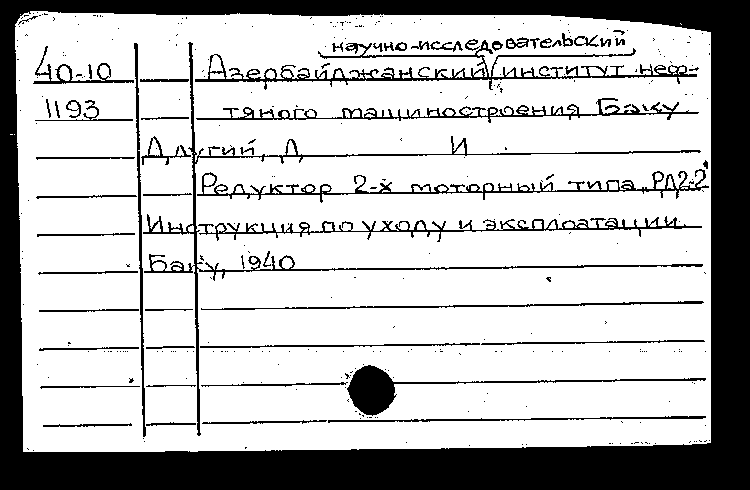 научно-исследовательский
40-10 Азербайджанский институт неф-
1193 тяного машиностроения Баку
Длугий, Д И
Редуктор 2-х моторный типа „РД2-2"
Инструкция по уходу и эксплоатации.
Баку, 1940